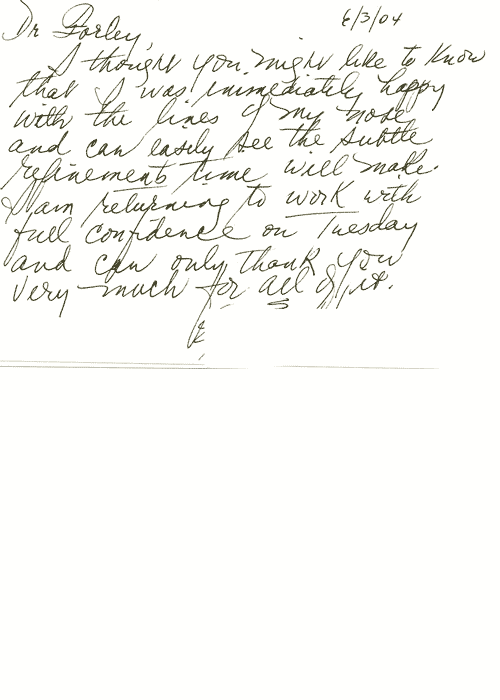 6/3/04
Dr Forley,
I thought you might like to know
that I was immediately happy
with the lines of my nose
and can easily see the subtle
refinements time will make.
I am returning to work with
full confidence on Tuesday
and can only thank you
very much for all of it.